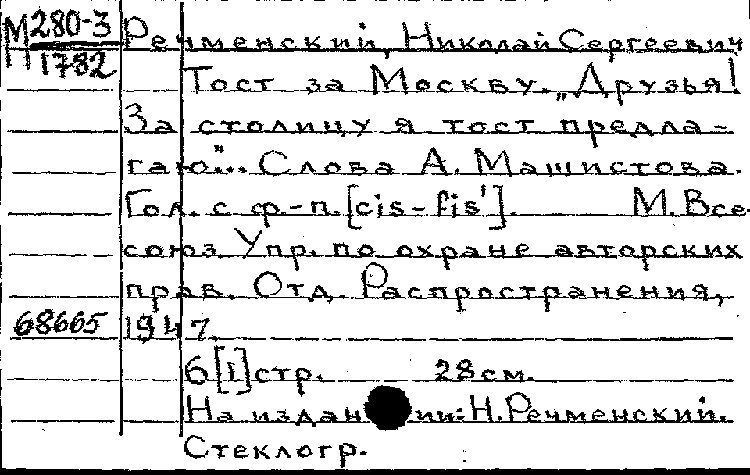 М 280-3 Речменский, Николай Сергеевич
Н 1782
Тост за Москву. „Друзья!
За столицу я тост предла-
гаю"... Слова А. Машистова.
Гол. с ф.-п. [cis-fis']. М. Все-
союз. Упр. по охране авторских
прав. Отд. Распространения,
68665 1947.
6 [1] стр. 28 см.
На издании: Н. Речменский.
Стеклогр.